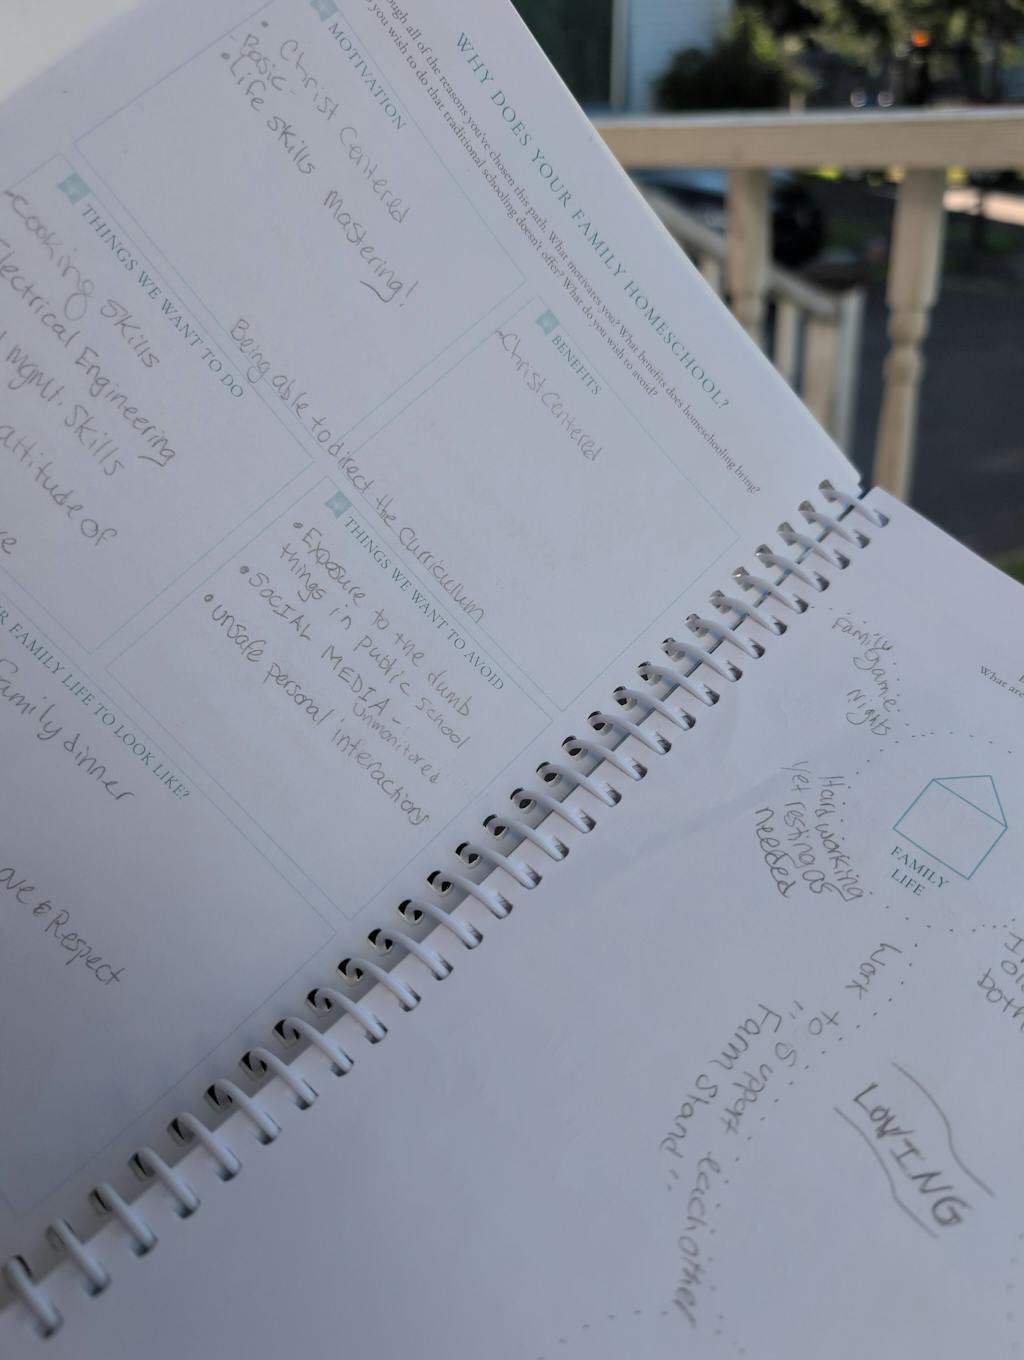 WHY DOES YOUR FAMILY HOMESCHOOL?
ough all of the reasons you've chosen this path. What motivates you? What benefits does homeschooling bring?
you wish to do that traditional schooling doesn't offer? What do you wish to avoid?
MOTIVATION
• Christ Centered
- Basic -
• Life skills mastering!
BENEFITS
~Christ Centered
Being able to direct the curriculum
THINGS WE WANT TO DO
~Cooking skills
Electrical Engineering
Mgmt. skills
attitude of
THINGS WE WANT TO AVOID
• Exposure to the dumb
things in public school
• SOCIAL MEDIA -
unmonitored
• unsafe personal interactions
R FAMILY LIFE TO LOOK LIKE?
Family dinner
ove & Respect
What are
Family
game
Nights
Hardworking
yet resting as
needed
FAMILY
LIFE
Work to
"Support eachother
Farm Stand"
LOVING
both